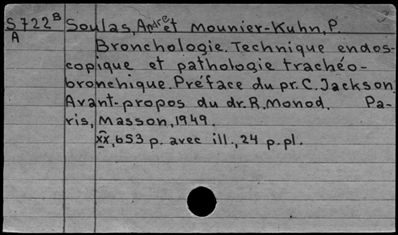 S722B Soulas, André et Mounier-Kuhn, P.
A
Bronchologie. Technique endos-
copique et pathologie trachéo-
bronchique. Préface du pr. C. Jackson.
Avant-propos du dr. R. Monod. Pa-
ris, Masson, 1949.
xx, 653 p. avec ill., 24 p. pl.